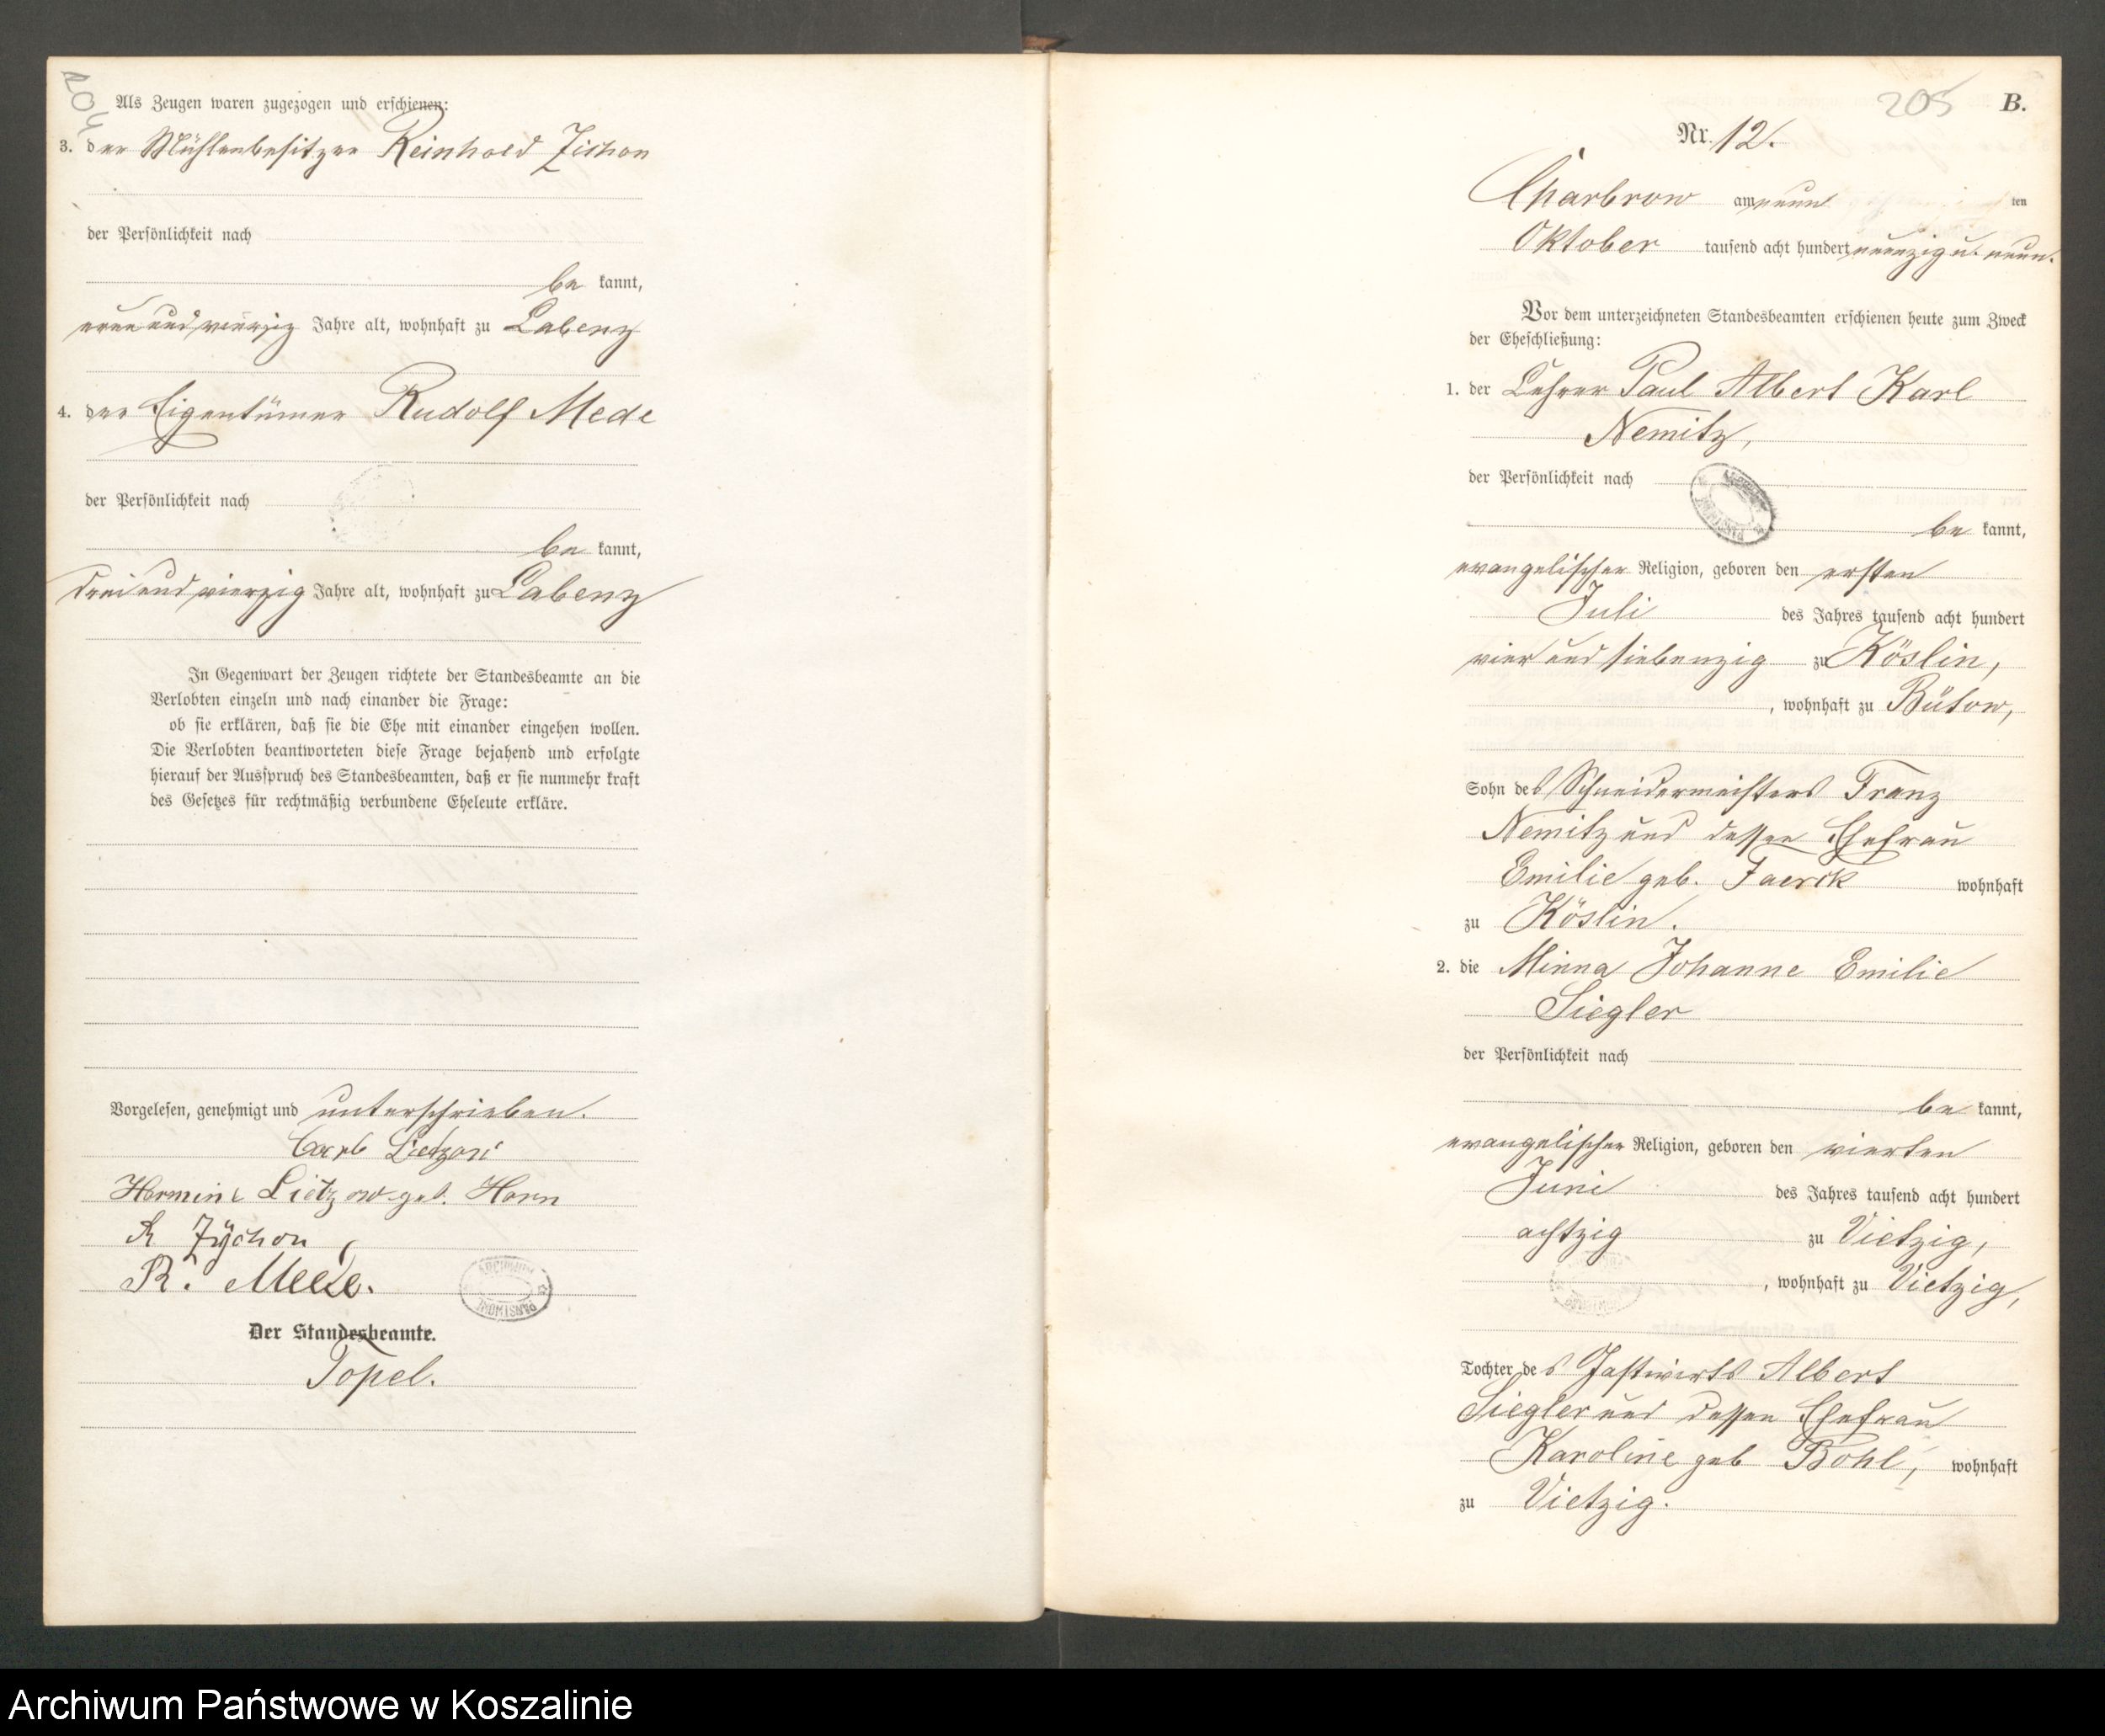 204
Als Zeugen waren zugezogen und erschienen:
3. der Mühlenbesitzer Reinhold Zichon
der Persönlichkeit nach
be kannt,
neun und vierzig Jahre alt, wohnhaft zu Labenz
4. der Eigentümer Rudolf Mede
der Persönlichkeit nach
be kannt,
drei und vierzig Jahre alt, wohnhaft zu Labenz
In Gegenwart der Zeugen richtete der Standesbeamte an die
Verlobten einzeln und nach einander die Frage:
ob sie erklären, daß sie die Ehe mit einander eingehen wollen.
Die Verlobten beantworteten diese Frage bejahend und erfolgte
hierauf der Ausspruch des Standesbeamten, daß er sie nunmehr kraft
des Gesetzes für rechtmäßig verbundene Eheleute erkläre.
Vorgelesen, genehmigt und unterschrieben.
Lietzow
Hermine Lietzow geb. Horn
R Zÿchon
R. Mede.
ARCHIWUM PAŃSTWOWE
Der Standesbeamte.
Topel.
205 B.
Nr. 12.
Charbrow am neun ten
Oktober tausend acht hundert neunzig u. neun.
Vor dem unterzeichneten Standesbeamten erschienen heute zum Zweck
der Eheschließung:
1. der Lehrer Paul Albert Karl
Nemitz,
der Persönlichkeit nach
be kannt,
evangelischer Religion, geboren den ersten
Juli des Jahres tausend acht hundert
vier und siebenzig zu Köslin,
, wohnhaft zu Bütow,
Sohn des Schneidermeisters Franz
Nemitz und dessen Ehefrau
Emilie geb. Faerck wohnhaft
zu Köslin.
2. die Minna Johanne Emilie
Siegler
der Persönlichkeit nach
be kannt,
evangelischer Religion, geboren den vierten
Juni des Jahres tausend acht hundert
achtzig zu Vietzig,
, wohnhaft zu Vietzig,
Tochter des Gastwirts Albert
Siegler und dessen Ehefrau
Karoline geb Bohl, wohnhaft
zu Vietzig.
Archiwum Państwowe w Koszalinie